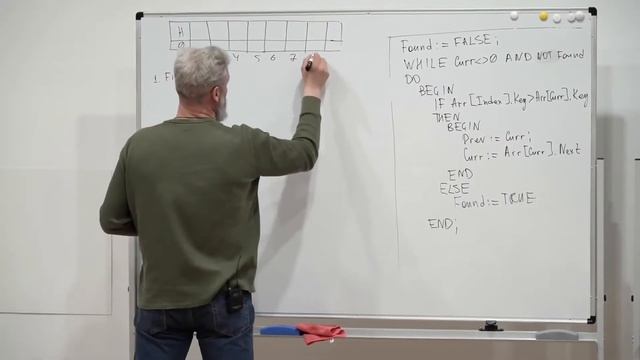 H
0
4 5 6 7
1. F
Found := FALSE;
WHILE Curr<>0 AND NOT Found
DO
BEGIN
IF Arr[Index].Key>Arr[Curr].Key
THEN
BEGIN
Prev := Curr;
Curr := Arr[Curr].Next
END
ELSE
Found := TRUE
END;